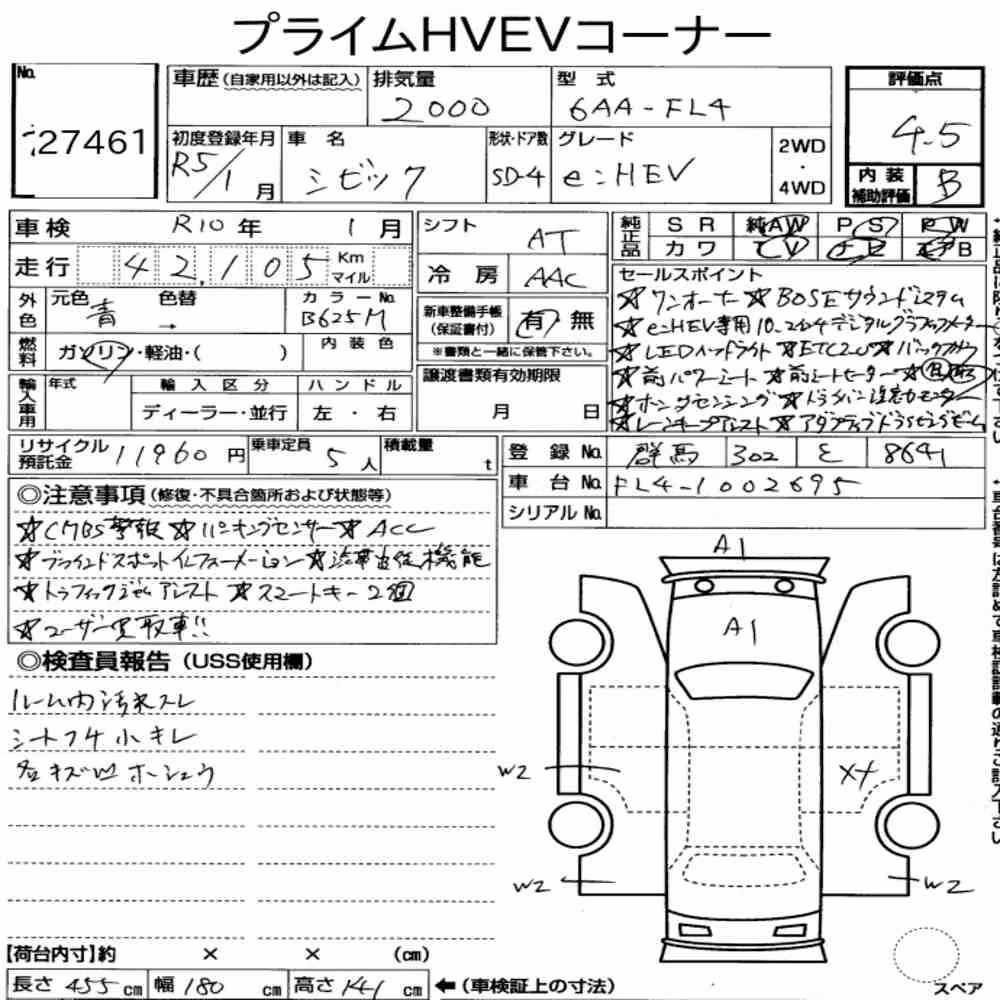 プライムHVEVコーナー
No. 27461
車歴 (自家用以外は記入)
排気量 2000
型式 6AA-FL4
評価点 4.5
初度登録年月 R5/1月
車名 シビック
形状・ドア数 SD-4
グレード e:HEV
2WD・4WD
内装補助評価 B
車検 R10年 1月
シフト AT
純正品 SR 純AW PS PW
カワ TV
走行 42,105 Km マイル
冷房 AAC
セールスポイント
☆ワンオーナー ☆BOSEサウンドシステム
☆e:HEV専用10.2インチデジタルグラフィックメーター
☆LEDヘッドライト ☆ETC2.0 ☆バックカメラ
☆前パワーシート ☆前シートヒーター
☆ホンダセンシング ☆ドライバー注意力モニター
☆レーンキープアシスト ☆アダプティブドライビングビーム
外色 元色 青 色替 →
カラーNo. B625M
新車整備手帳(保証書付) 有 無
※書類と一緒に保管下さい。
燃料 ガソリン・軽油・( )
内装色
譲渡書類有効期限 月 日
輸入車用 年式 輸入区分 ハンドル
ディーラー・並行 左・右
リサイクル預託金 11960円
乗車定員 5人
積載量 t
登録No. 群馬 302 8641
車台No. FL4-1002695
シリアルNo.
◎注意事項(修復・不具合箇所および状態等)
☆CMBS警報 ☆パーキングセンサー ☆ACC
☆ブラインドスポットインフォメーション ☆渋滞追従機能
☆トラフィックジャムアシスト ☆スマートキー2個
☆ユーザー買取車!!
◎検査員報告(USS使用欄)
ルーム内汚れスレ
シートフチ小キレ
各キズ凹ホシュウ
A1
A1
W2
X+
W2
W2
スペア
【荷台内寸】約 × × (cm)
長さ 455cm 幅 180cm 高さ 141cm ←(車検証上の寸法)